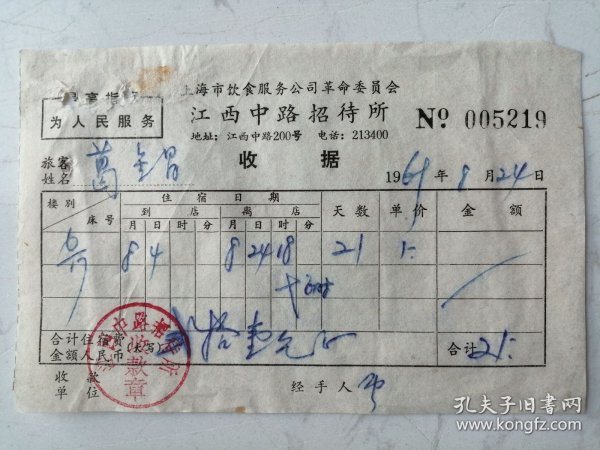 最高指示
为人民服务
上海市饮食服务公司革命委员会
江西中路招待所
地址：江西中路200号 电话：213400
№ 005219
收据
旅客姓名 葛
1969年8月24日
楼别 床号 住宿日期 天数 单价 金额
到店 离店
月 日 时 分 月 日 时 分
8 4 8 24 18 21 1.-
合计住宿费 (大写) 贰拾壹元
金额人民币 合计 21.-
江西中路招待所
收款章
收款单位 经手人
孔夫子旧书网
www.kongfz.com